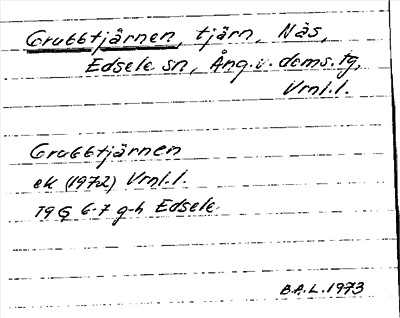 Grubbtjärnen, tjärn, Näs,
Edsele sn, Ång. v. doms. tg,
Vrnl.l.
Grubbtjärnen
ek (1972) Vrnl.l.
19 G 6-7 g-h Edsele
B.A.L. 1973